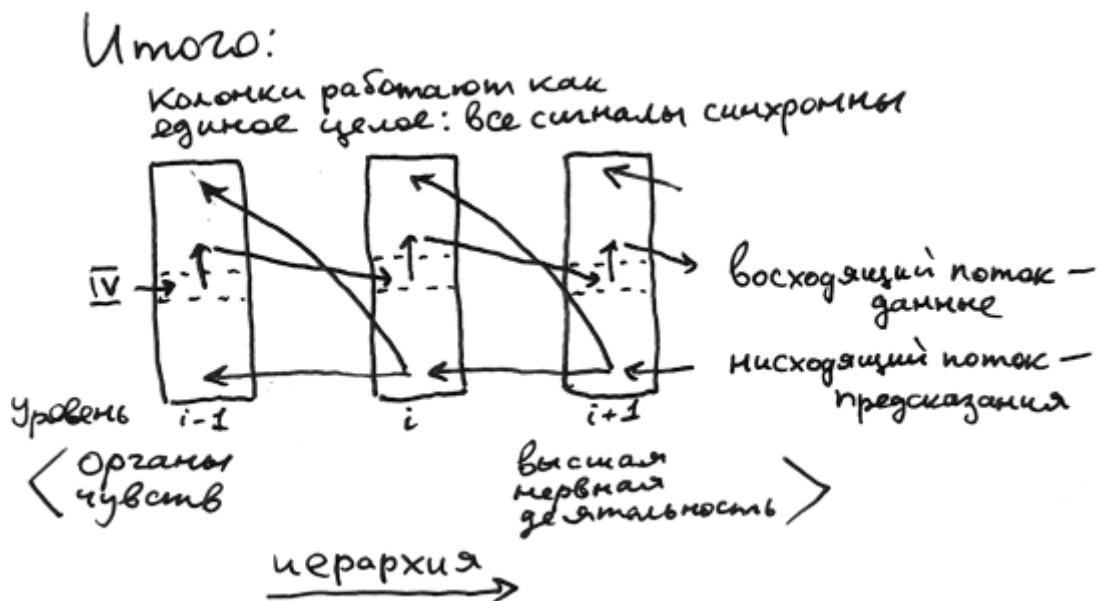 Итого:
Колонки работают как
единое целое: все сигналы синхронны
IV
восходящий поток —
данные
нисходящий поток —
предсказания
Уровень i-1 i i+1
органы
чувств
высшая
нервная
деятельность
иерархия